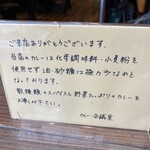 ご来店ありがとうございます。
当店のカレーは化学調味料・小麦粉を
使用せず油・砂糖は極力少なめと
なっております。
数種類のスパイスと野菜たっぷりのカレーを
お楽しみ下さい。
カレー 会議室